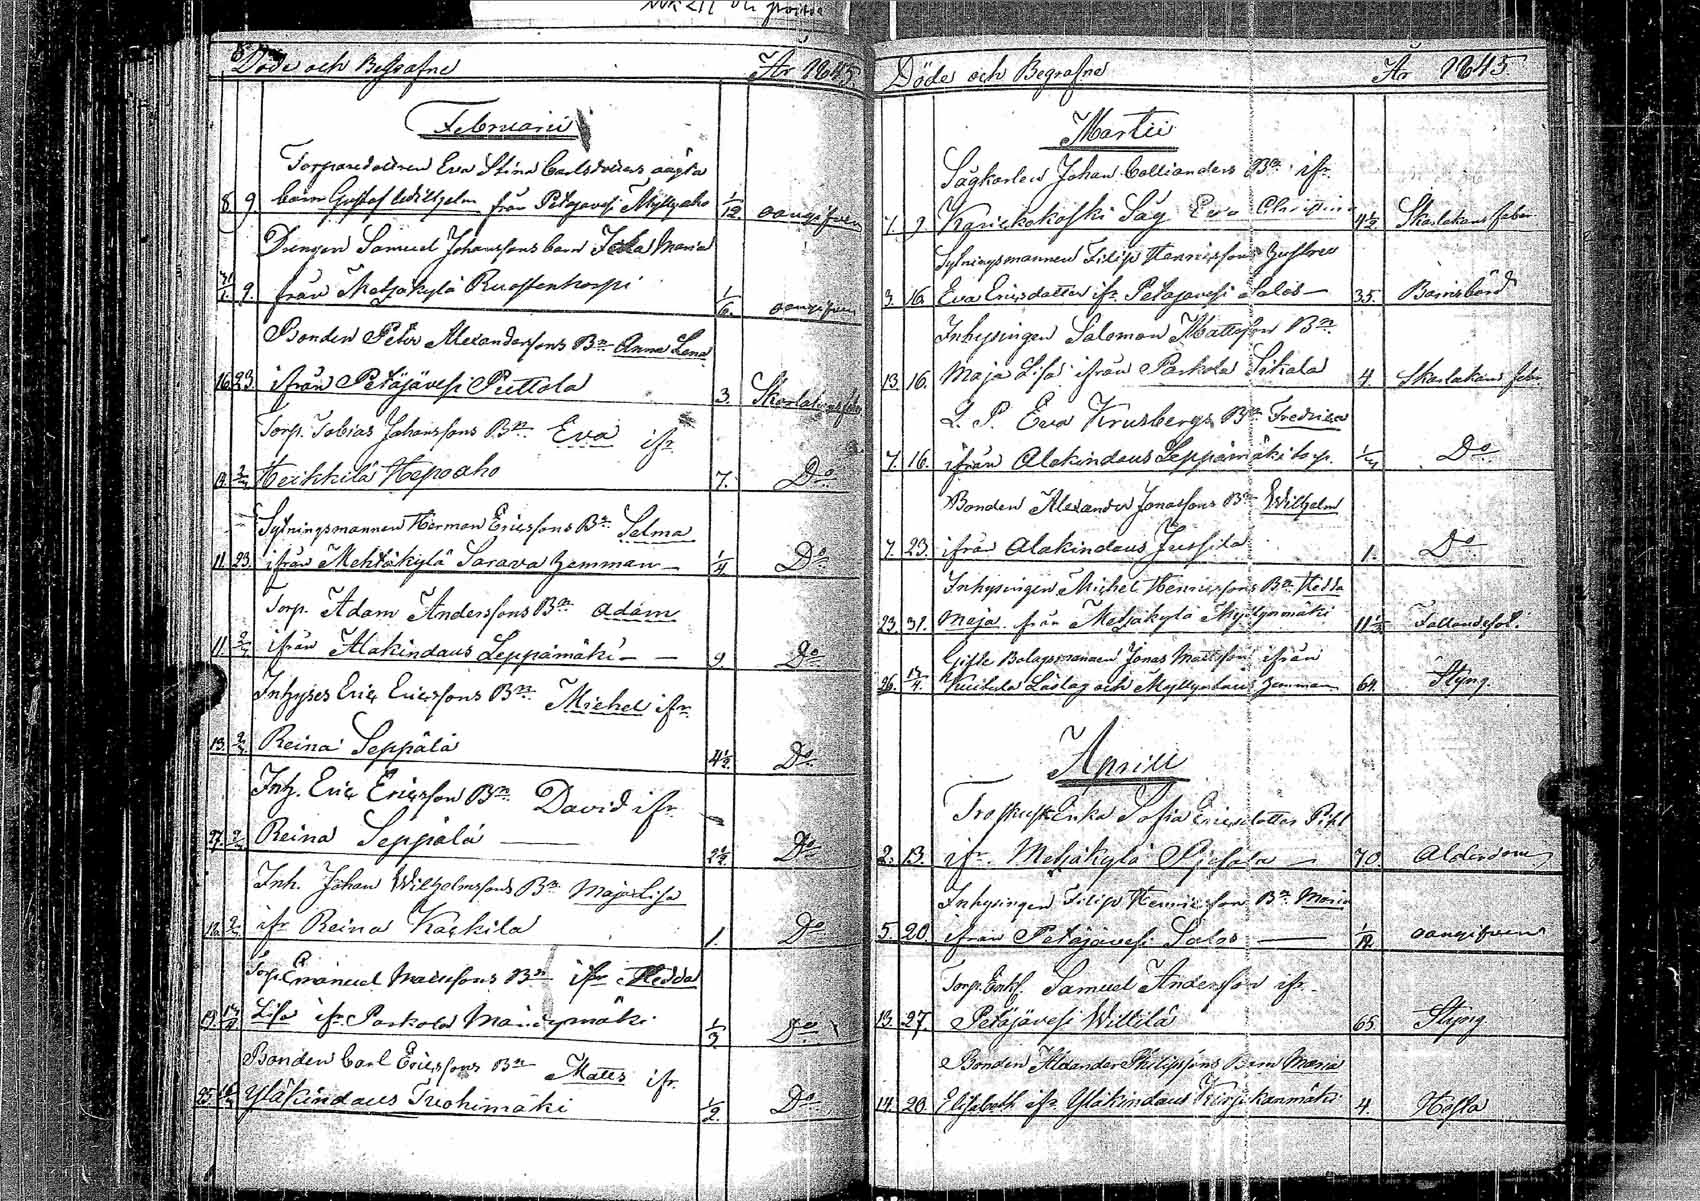 Döde och Begrafne År 1845.
Februarii
Torparedottren Eva Stina Carlsdotters oägta
8. 9. barn Gustaf Wilhelm från Petäjävesi Myllyaho 1/12 oangifven
Drengen Samuel Johanssons barn Maria
31/1. 9. från Metsäkylä Ruostenkorpi 1/6. oangifven
Bonden Peter Alexanderssons Bn Anna Lena
16. 23. ifrån Petäjävesi Puttola 3. Skarlakansfeber
Torp. Tobias Johanssons Bn Eva ifr.
19. Heikkilä Hepoaho 7. Do
Sytningsmannen Herman Ericssons Bn Selma
11. 23. ifrån Mehtäkylä Sarava hemman — 1/4 Do
Torp. Adam Anderssons Bn Adam
11. ifrån Alakindaus Leppämäki — — 9 Do
Inhyses Eric Ericssons Bn Michel ifr.
13. Reina Seppälä 4 1/2. Do
Inh. Eric Ericsson Bn David ifr.
27. Reina Seppälä — 2 1/2 Do
Inh. Johan Wilhelmssons Bn Maja Lisa
18. ifr Reina Käckilä 1. Do
Torp. Emanuel Mattssons Bn ifr Hedda
19. Lisa ifr. Parkola Mändymäki Do
Bonden Carl Ericssons Bn Matts ifr.
25. Yläkindaus Tuohimäki 1/2. Do
Döde och Begrafne År 1845
Martii
Sågkarlen Johan Collianders Bn ifr.
7. 9. Kaskikoski Såg Eva Christina 4 1/2 Skarlakansfeber
Sytningsmannen Filip Henricssons hustru
3. 16. Eva Ericsdotter ifr. Petäjävesi Salos — 35. Barnsbörd
Inhysingen Salomon Mattsson Bn
13. 16. Maja Lisa ifrån Parkola Sikala 4. Skarlakans feber
L. P. Eva Krusbergs Bn Fredrica
7. 16. ifrån Alakindaus Leppämäki torp. Do
Bonden Alexander Jonassons Bn Wilhelm
7. 23. ifrån Alakindaus Jussila 1. Do
Inhysingen Michel Henricssons Bn Hedda
23. 31. Maja från Metsäkylä Myllymäki Fallandesot.
Gifte Bolagsmannen Jonas Mattsson ifrån
26. och hemman 64. Styng.
Aprill
Enka Sofia Ericsdotter Pihl
2. 13. ifr. Metsäkylä — 70. Ålderdom
Inhysingen Filip Henricsson Bn Maria
5. 20. ifrån Petäjävesi Salos — 1/12. oangifven
Torp. Enkl. Samuel Andersson ifr.
13. 27. Petäjävesi Wiltilä 65. Styng
Bonden Alexander Philipssons Barn Maria
14. 20. Elisabeth ifr. Yläkindaus Kirsikanmäki 4. Hosta